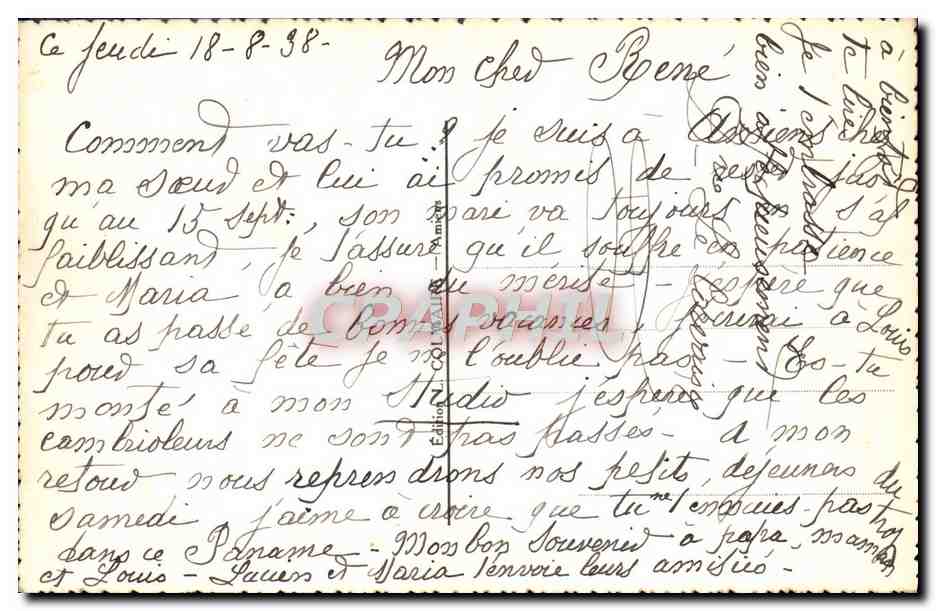 Ce Jeudi 18-8-38-
Mon cher René
Comment vas-tu ? je suis à Amiens chez
ma sœur et lui ai promis de rester jus
qu'au 15 sept., son mari va toujours s'af
faiblissant, je t'assure qu'il souffre en patience
et Maria a bien du mérite - j'espère que
tu as passé de bonnes vacances, j'écrirai à Louis
pour sa fête je ne l'oublie pas - Es-tu
monté à mon Studio j'espère que les
cambrioleurs ne sont pas passés - à mon
retour nous reprendrons nos petits déjeuners du
samedi j'aime à croire que tu ne t'ennuies pas trop
dans ce Paname - Mon bon souvenir à papa, maman
et Louis - Lucien et Maria t'envoie leurs amitiés -
à bientôt
Je t'embrasse
bien affectueusement
Édition L. COLMAUX — Amiens
CARTHAPHIL